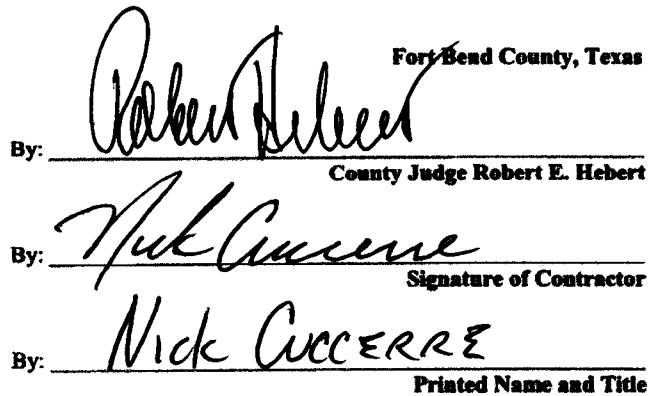 Fort Bend County, Texas
By: Robert Hebert
County Judge Robert E. Hebert
By: Nick Cuccerre
Signature of Contractor
By: Nick CUCCERRE
Printed Name and Title